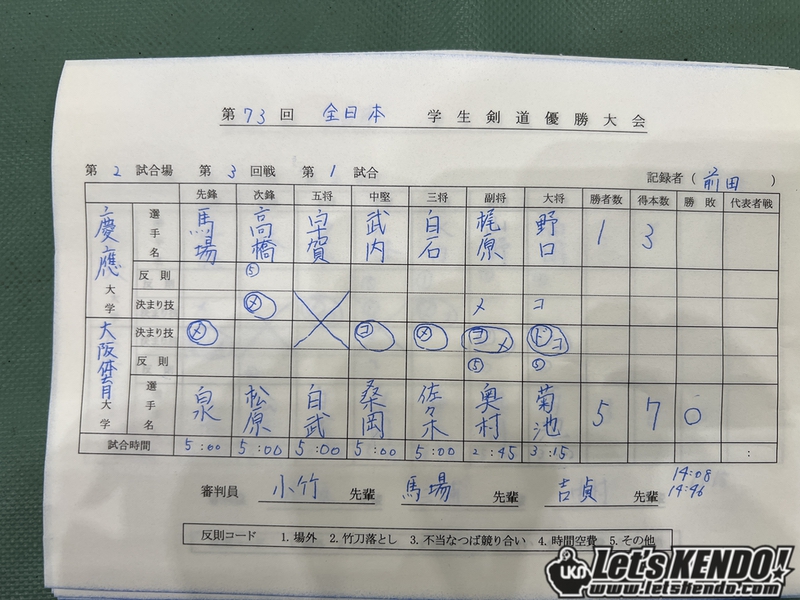 第 73 回 全日本 学生剣道優勝大会
第 2 試合場 第 3 回戦 第 1 試合 記録者 ( 前田 )
先鋒 次鋒 五将 中堅 三将 副将 大将 勝者数 得本数 勝敗 代表者戦
慶應大学 選手名 馬場 高橋 古賀 武内 白石 梶原 野口 1 3
反則 ⑤
決まり技 メ メ コ
決まり技 メ コ メ コ メ ド コ
反則 ⑤ ⑤
大阪体育大学 選手名 白武 桑岡 佐々木 奥村 菊池 松原 泉 5 7 〇
試合時間 5:00 5:00 5:00 5:00 5:00 2:45 3:15 :
14:08
14:46
審判員 小竹 先輩 馬場 先輩 吉貞 先輩
反則コード 1. 場外 2. 竹刀落とし 3. 不当なつば競り合い 4. 時間空費 5. その他
LKD LET'S KENDO!
www.letskendo.com